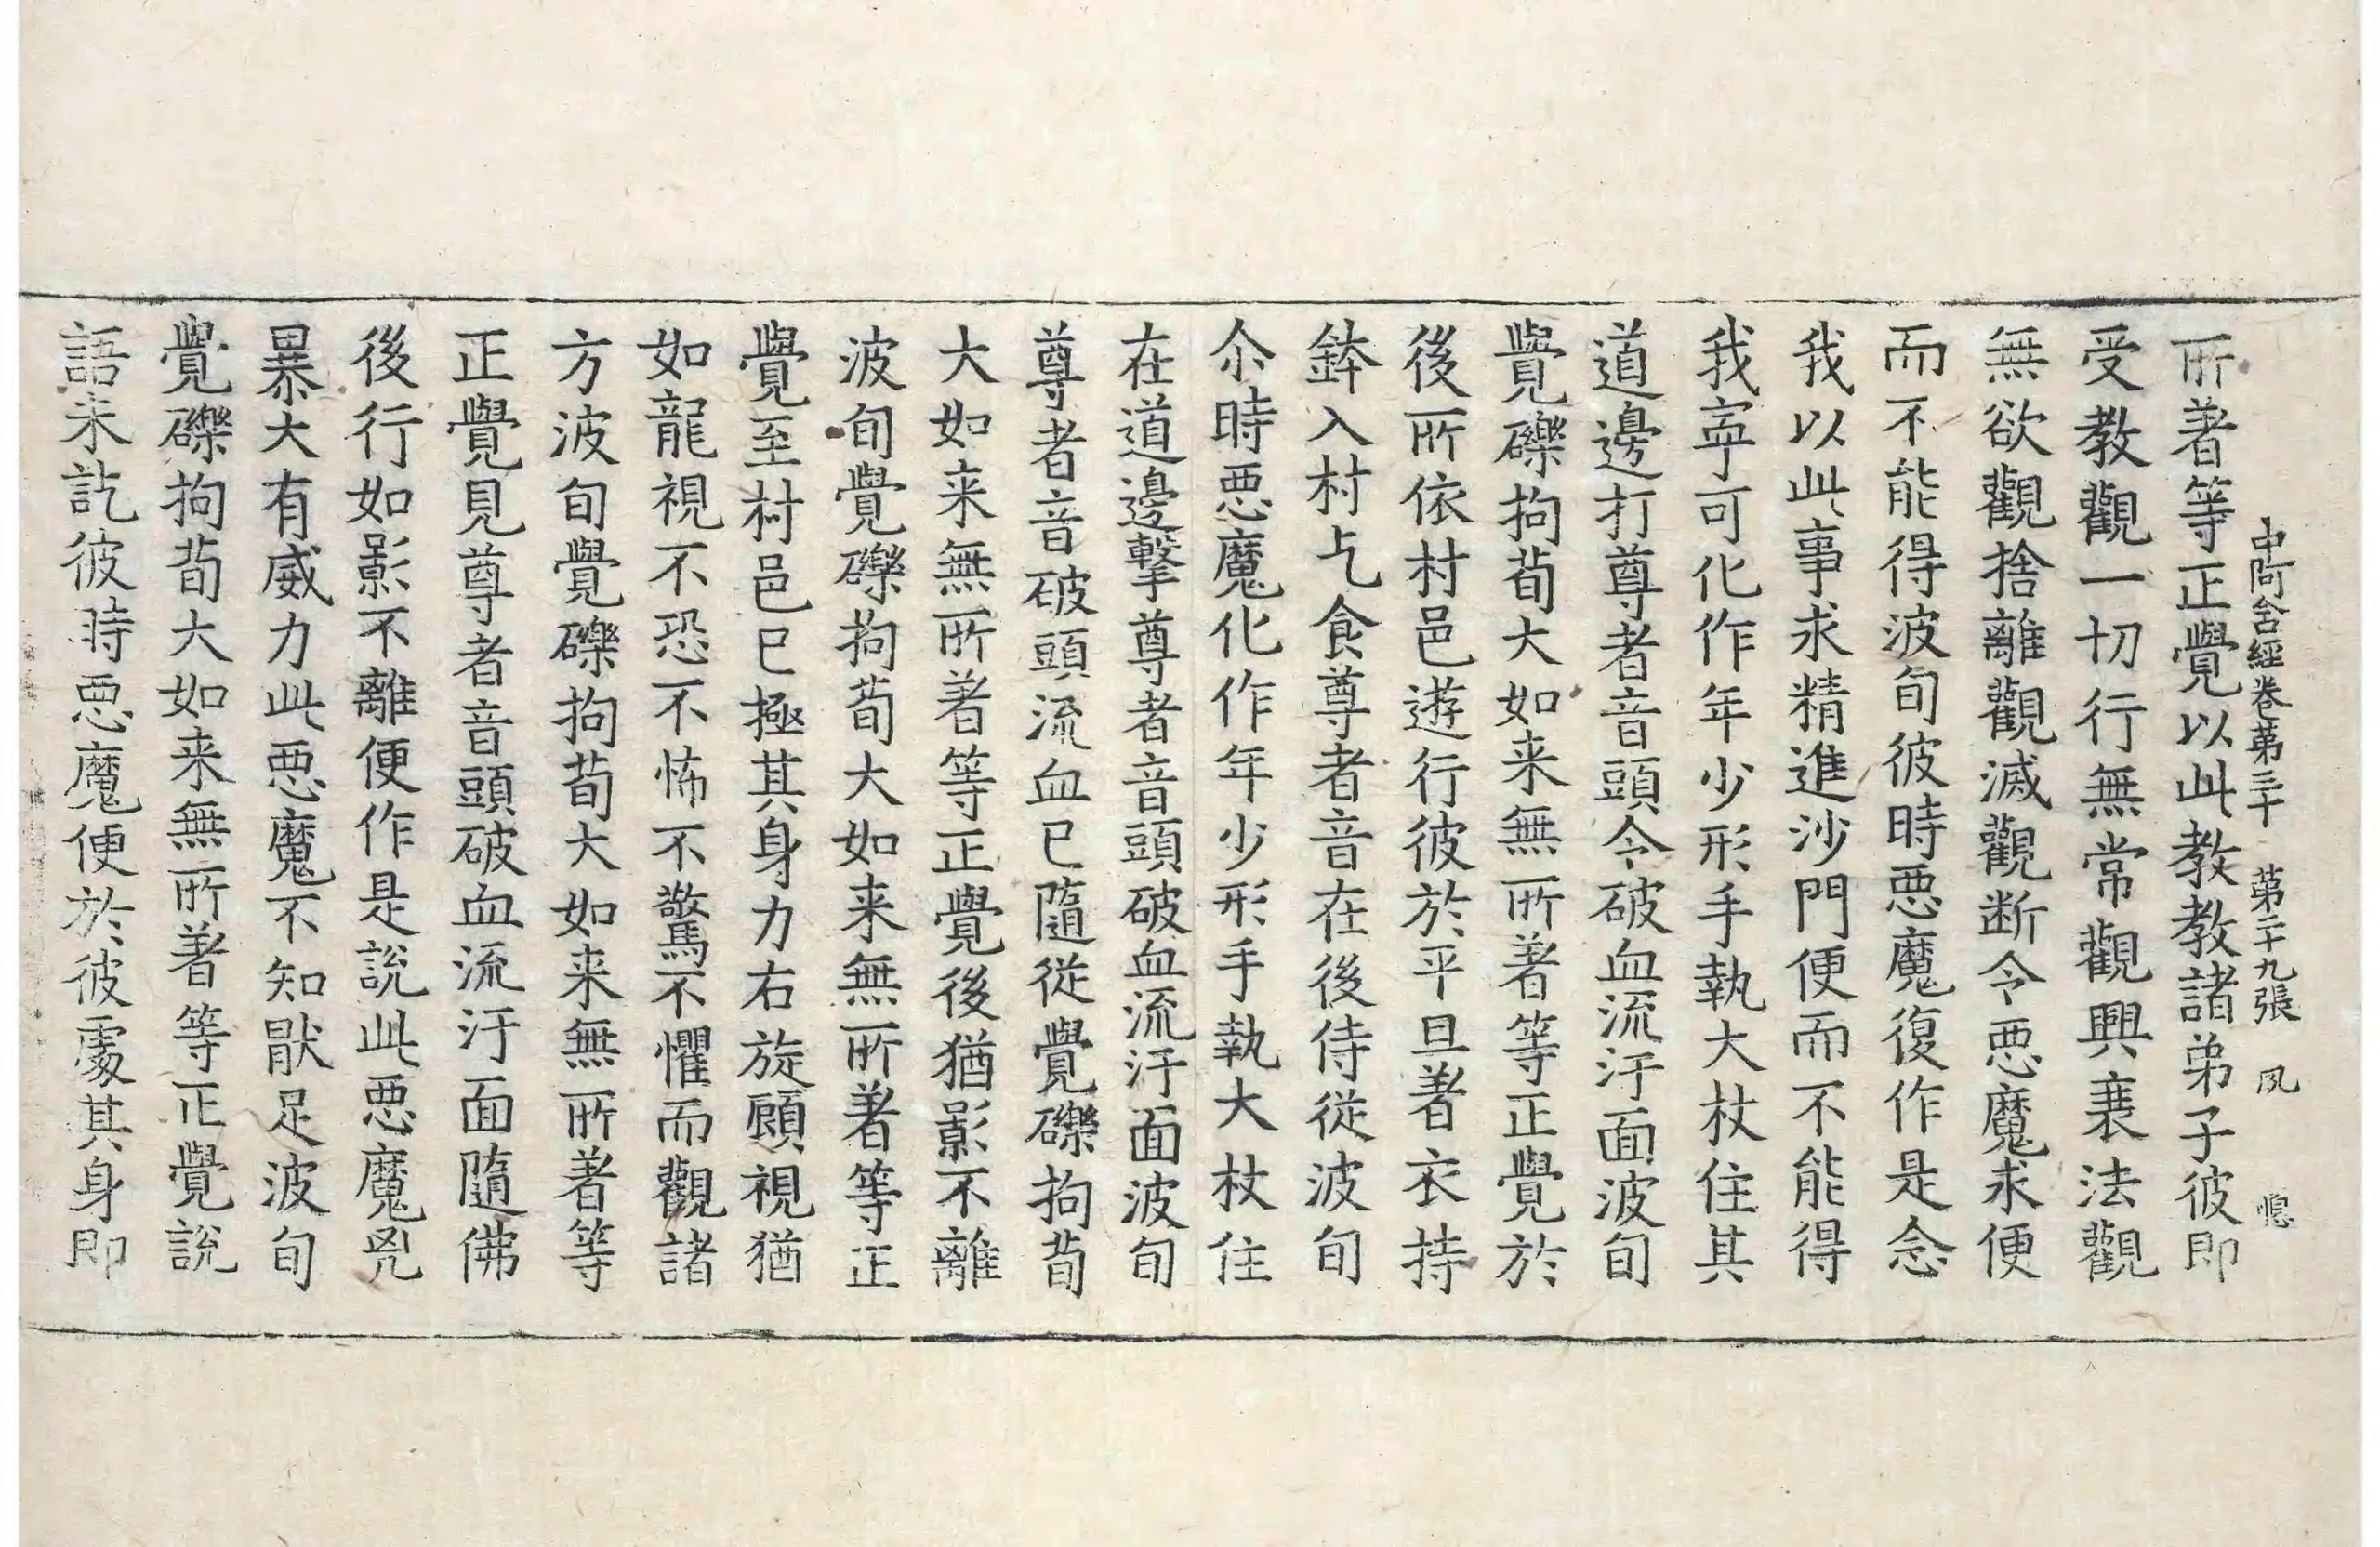 中阿含經卷第三十　第二十九張　夙　㥧
所著等正覺以此教教諸弟子彼即
受教觀一切行無常觀興衰法觀
無欲觀捨離觀滅觀断令悪魔求便
而不能得波旬彼時悪魔復作是念
我以此事求精進沙門便而不能得
我寧可化作年少形手執大杖住其
道邊打尊者音頭令破血流汙面波旬
覺礫拘荀大如来無所著等正覺於
後所依村邑遊行彼於平旦著衣持
鉢入村乞食尊者音在後侍從波旬
尒時悪魔化作年少形手執大杖住
在道邊擊尊者音頭破血流汙面波旬
尊者音破頭流血已隨從覺礫拘荀
大如来無所著等正覺後猶影不離
波旬覺礫拘荀大如来無所著等正
覺至村邑已極其身力右旋顧視猶
如龍視不恐不怖不驚不懼而觀諸
方波旬覺礫拘荀大如来無所著等
正覺見尊者音頭破血流汙面隨佛
後行如影不離便作是說此悪魔兇
暴大有威力此悪魔不知猒足波旬
覺礫拘荀大如来無所著等正覺說
語未訖彼時悪魔便於彼處其身即